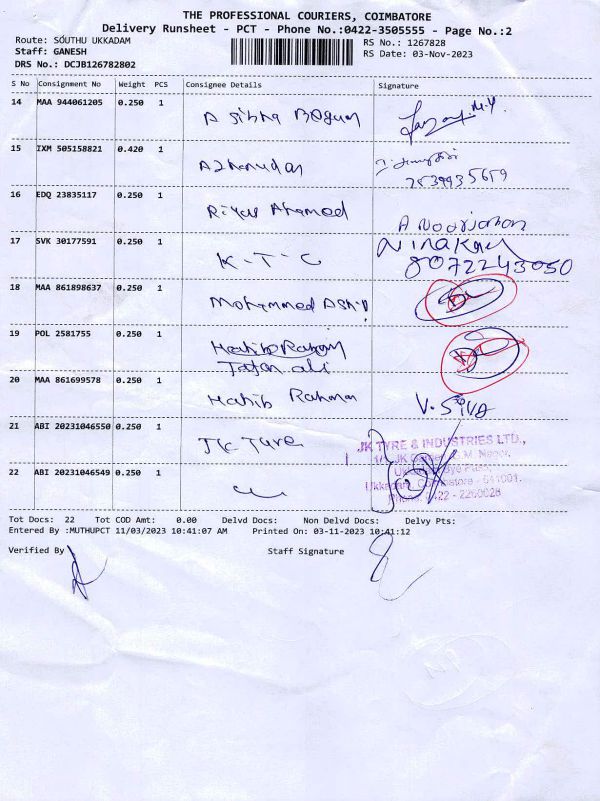 THE PROFESSIONAL COURIERS, COIMBATORE
Delivery Runsheet - PCT - Phone No.:0422-3505555 - Page No.:2
Route: SOUTHU UKKADAM
RS No.: 1267828
Staff: GANESH
RS Date: 03-Nov-2023
DRS No.: DCJB126782802
S No Consignment No Weight PCS Consignee Details Signature
14 MAA 944061205 0.250 1
15 IXM 505158821 0.420 1
16 EDQ 23835117 0.250 1 Riyas Ahamed A Noorjahan
17 SVK 30177591 0.250 1 K.T.C
8072243050
18 MAA 861898637 0.250 1 Mohammed
19 POL 2581755 0.250 1 Habib Rahman
Jafar ali
20 MAA 861699578 0.250 1 Habib Rahman V. SIVA
21 ABI 20231046550 0.250 1 JK Tyre
JK TYRE & INDUSTRIES LTD.,
22 ABI 20231046549 0.250 1
Coimbatore - 641001.
Phone: 0422 - 2260028
Tot Docs: 22 Tot COD Amt: 0.00 Delvd Docs: Non Delvd Docs: Delvy Pts:
Entered By :MUTHUPCT 11/03/2023 10:41:07 AM Printed On: 03-11-2023 10:41:12
Verified By Staff Signature